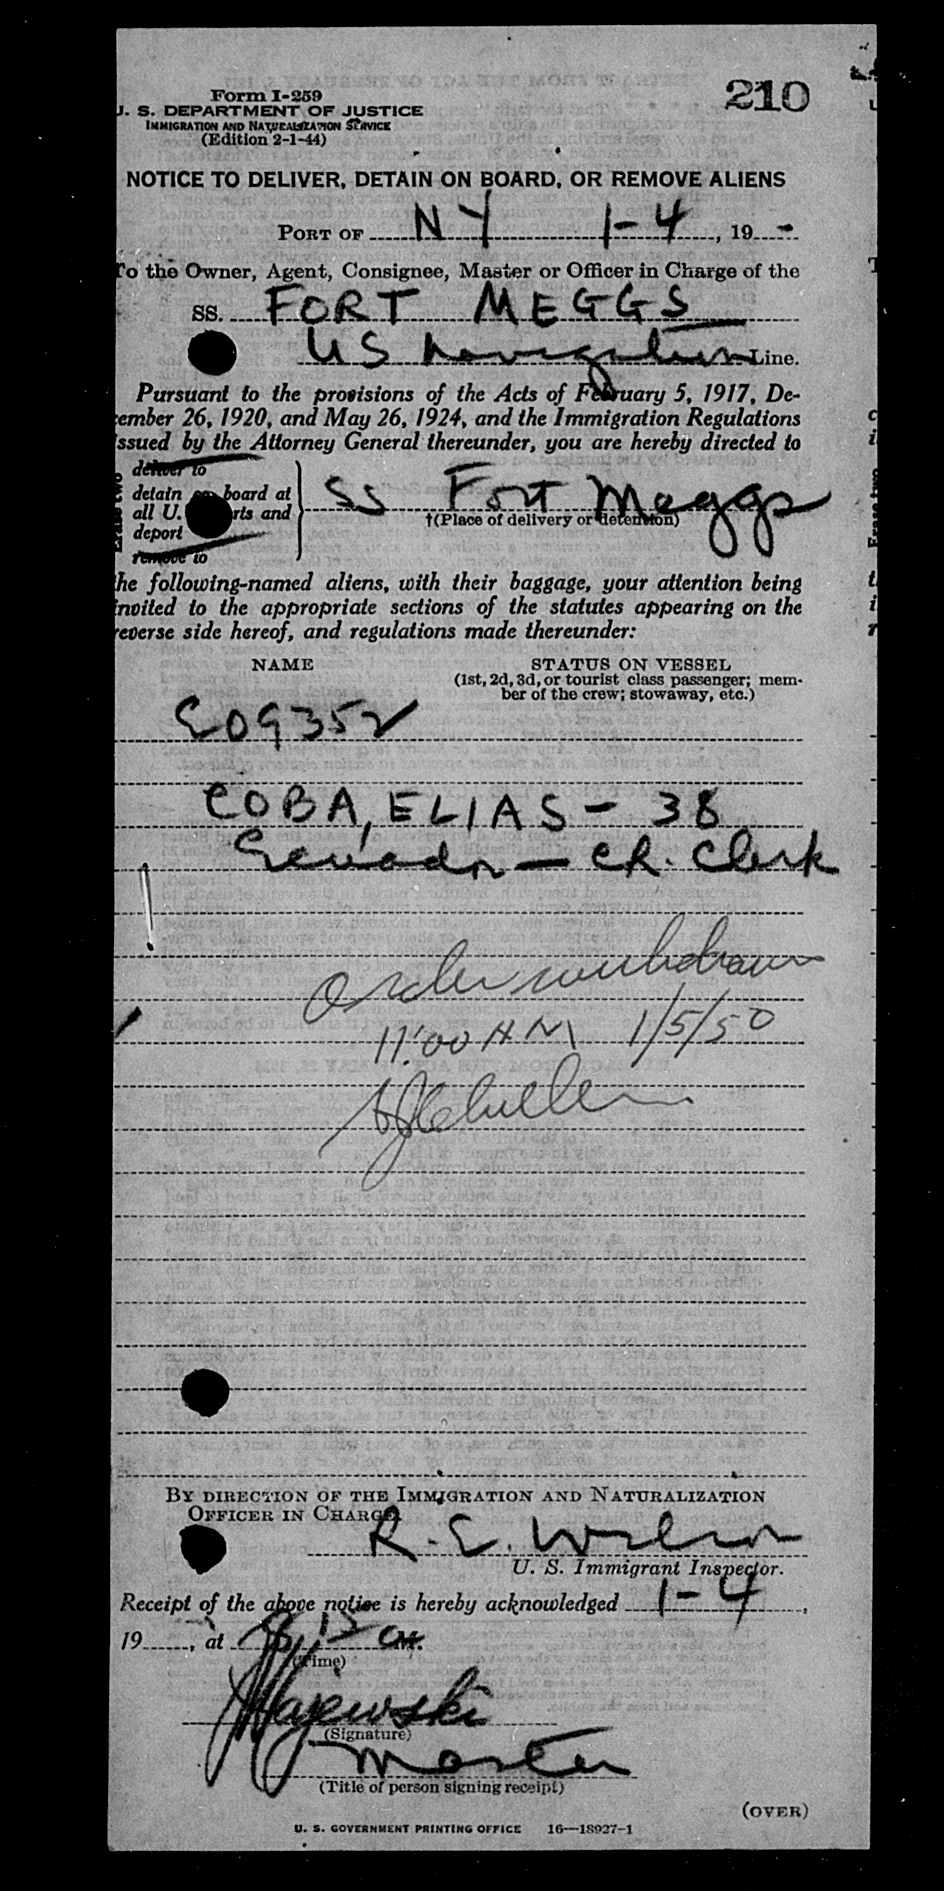 210
Form I-259
U. S. DEPARTMENT OF JUSTICE
IMMIGRATION AND NATURALIZATION SERVICE
(Edition 2-1-44)
NOTICE TO DELIVER, DETAIN ON BOARD, OR REMOVE ALIENS
PORT OF NY 1-4, 19 -
To the Owner, Agent, Consignee, Master or Officer in Charge of the
SS. FORT MEGGS
US Navigation Line.
Pursuant to the provisions of the Acts of February 5, 1917, De-
cember 26, 1920, and May 26, 1924, and the Immigration Regulations
issued by the Attorney General thereunder, you are hereby directed to
deliver to
detain on board at
all U. rts and
deport
remove to
Erase two
SS Fort Meggs
†(Place of delivery or detention)
the following-named aliens, with their baggage, your attention being
invited to the appropriate sections of the statutes appearing on the
reverse side hereof, and regulations made thereunder:
NAME STATUS ON VESSEL
(1st, 2d, 3d, or tourist class passenger; mem-
ber of the crew; stowaway, etc.)
E09352
COBA, ELIAS - 38
Ecuador - CR. Clerk
Order withdrawn
11:00 AM 1/5/50
BY DIRECTION OF THE IMMIGRATION AND NATURALIZATION
OFFICER IN CHARGE
R. E. Wilson
U. S. Immigrant Inspector.
Receipt of the above notice is hereby acknowledged 1-4,
19, at
(Time)
Majewski
(Signature)
Master
(Title of person signing receipt)
(OVER)
U. S. GOVERNMENT PRINTING OFFICE 16—18927-1